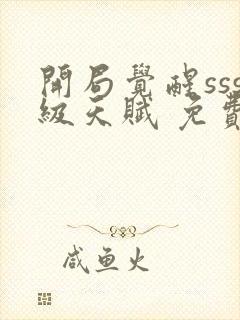 開局覺醒sss
級天賦 免費
咸鱼火